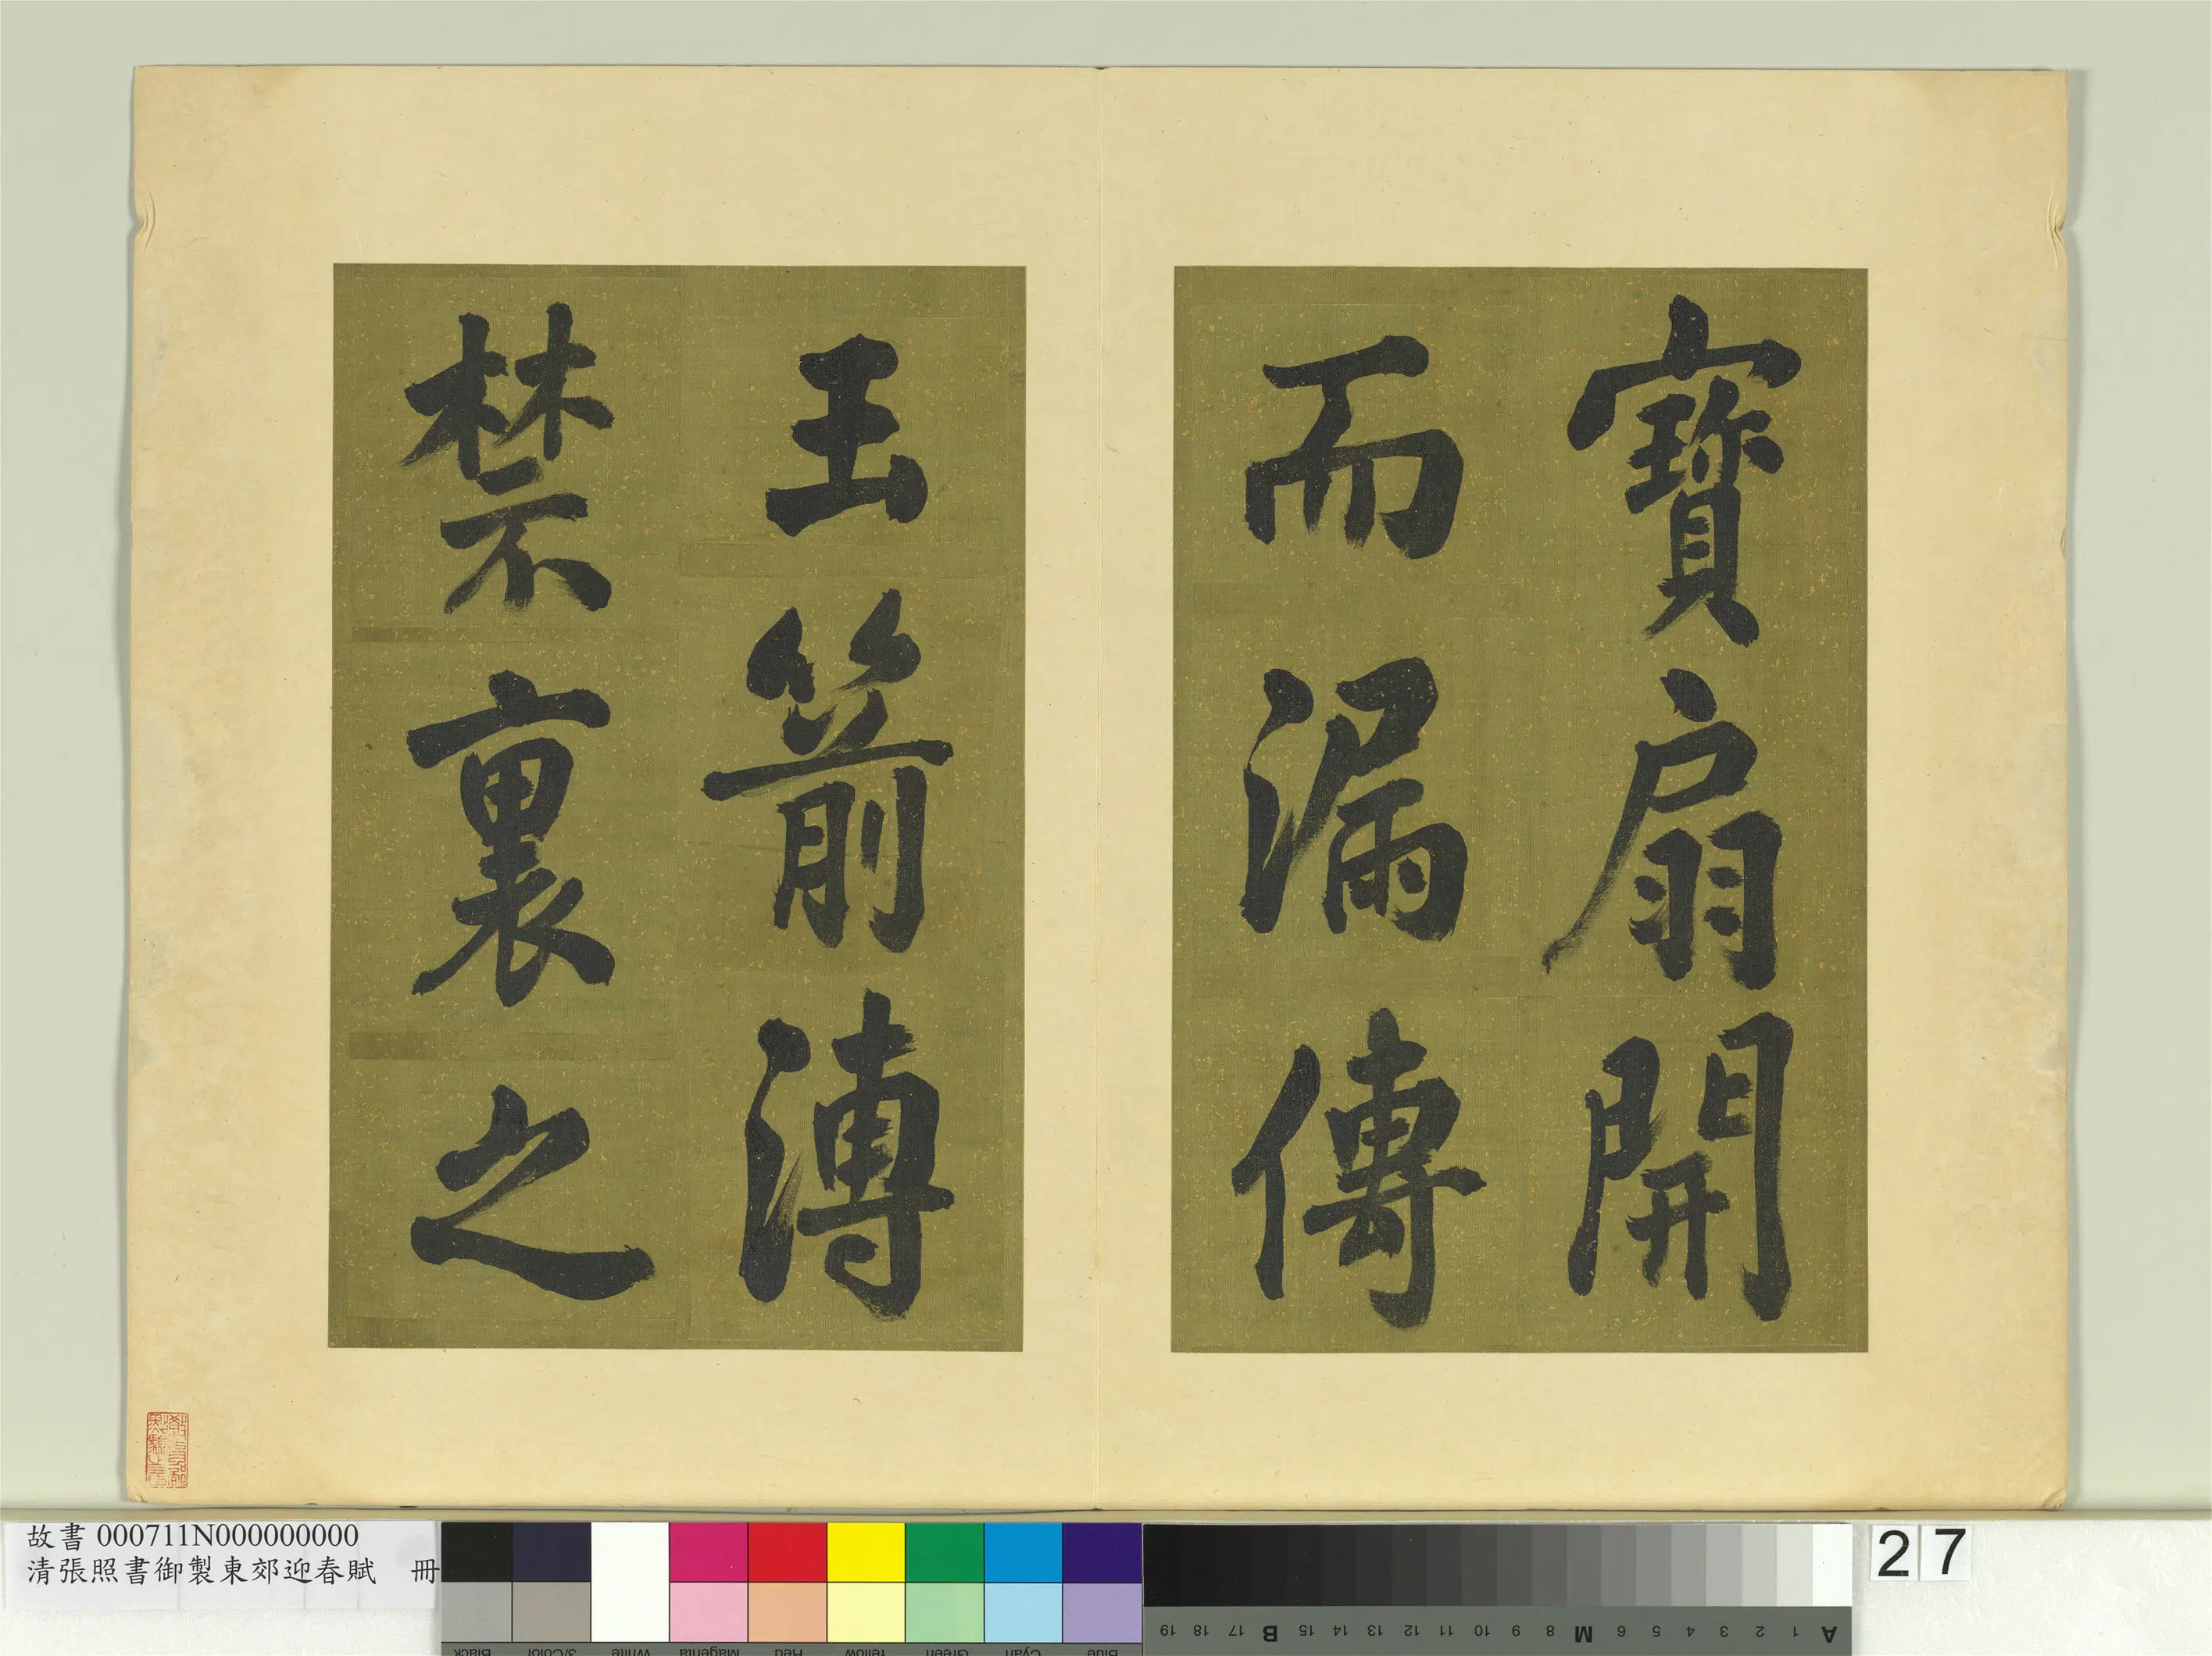 寶扇開
而漏傳
玉箭溥
禁裏之
故書 000711N000000000
清張照書御製東郊迎春賦 冊
27
Black 3/Color White Magenta Red Yellow Green Cyan Blue
A 1 2 3 4 5 6 M 8 9 10 11 12 13 14 15 B 17 18 19